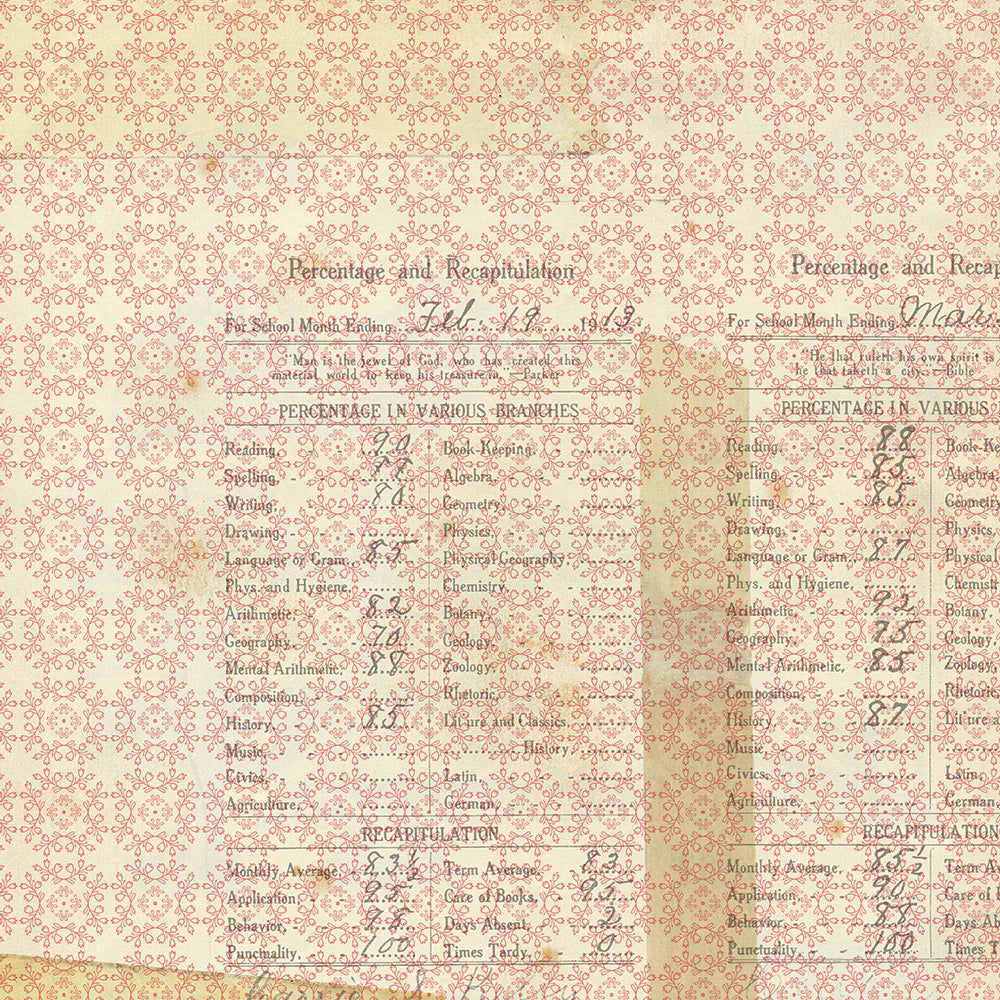 Percentage and Recapitulation
For School Month Ending Feb. 19 1913
"Man is the jewel of God, who has created this
material world to keep his treasure in."—Parker
PERCENTAGE IN VARIOUS BRANCHES
Reading, 90 Book-Keeping,
Spelling, Algebra,
Writing, 80 Geometry,
Drawing, Physics,
Language or Gram., 85 Physical Geography,
Phys. and Hygiene, Chemistry,
Arithmetic, 82 Botany,
Geography, 70 Geology,
Mental Arithmetic, 88 Zoology,
Composition, Rhetoric,
History, 85 Lit'ure and Classics,
Music, History,
Civics, Latin,
Agriculture, German,
RECAPITULATION
Monthly Average, 83½ Term Average, 83
Application, 95 Care of Books, 95
Behavior, 98 Days Absent, 2
Punctuality, 100 Times Tardy, 0
Percentage and Recap
For School Month Ending Mar
"He that ruleth his own spirit is
he that taketh a city.—Bible
PERCENTAGE IN VARIOUS
Reading, 88 Book-Ke
Spelling, 85 Algebra
Writing, 85 Geometr
Drawing, Physics,
Language or Gram., 87 Physical
Phys. and Hygiene, Chemist
Arithmetic, 92 Botany,
Geography, 75 Geology
Mental Arithmetic, 85 Zoology
Composition, Rhetoric
History, 87 Lit'ure a
Music,
Civics, Latin,
Agriculture, German
RECAPITULATION
Monthly Average, 85½ Term A
Application, 90 Care of B
Behavior, 88 Days Ab
Punctuality, 100 Times T